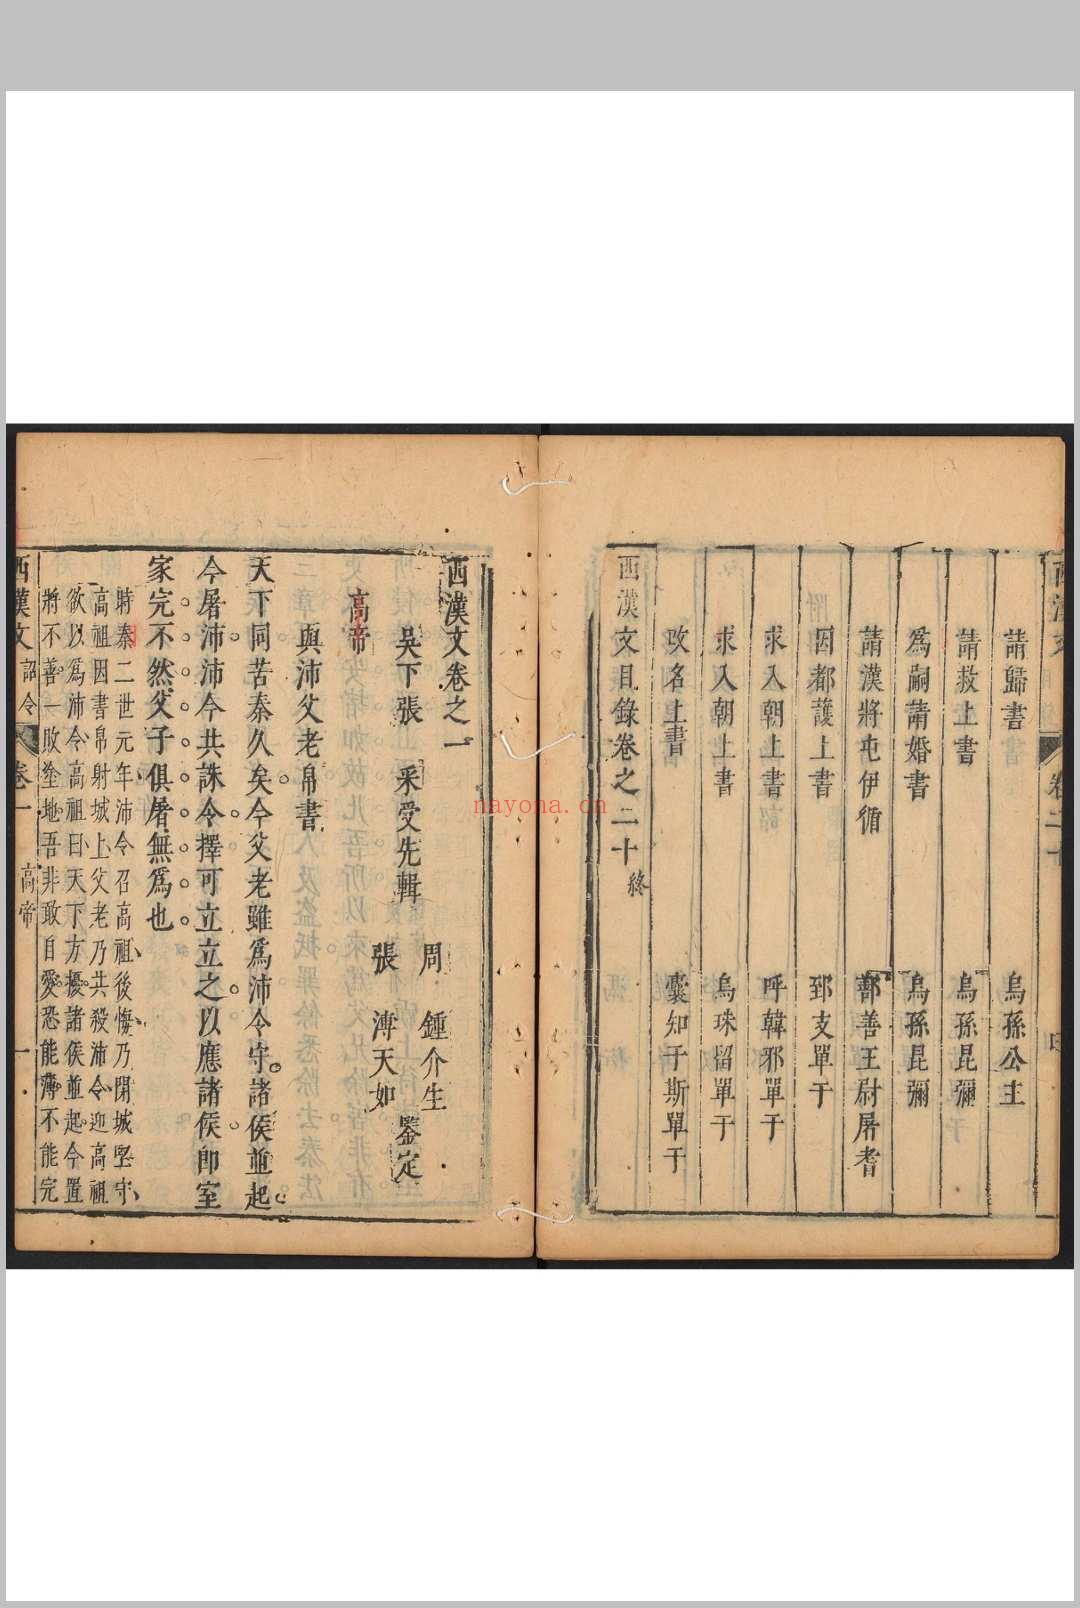 請歸書 烏孫公主
請救上書 烏孫昆彌
為嗣請婚書 烏孫昆彌
請漢將屯伊循 鄯善王尉屠耆
因都護上書 郅支單于
求入朝上書 呼韓邪單于
求入朝上書 烏珠留單于
改名上書 囊知牙斯單于
西漢文目錄卷之二十終
西漢文卷之一
吳下張 采受先輯 周 鍾介生
張 溥天如 鑒定
高帝
與沛父老帛書
天下同苦秦久矣今父老雖為沛令守諸侯並起
今屠沛沛今共誅令擇可立立之以應諸侯即室
家完不然父子俱屠無為也
時秦二世元年沛令召高祖後悔乃閉城堅守
高祖因書帛射城上父老乃共殺沛令迎高祖
欲以為沛令高祖曰天下方擾諸侯並起今置
將不善一敗塗地吾非敢自愛恐能薄不能完
西漢文 詔令 卷一 高帝 一
nayona.cn